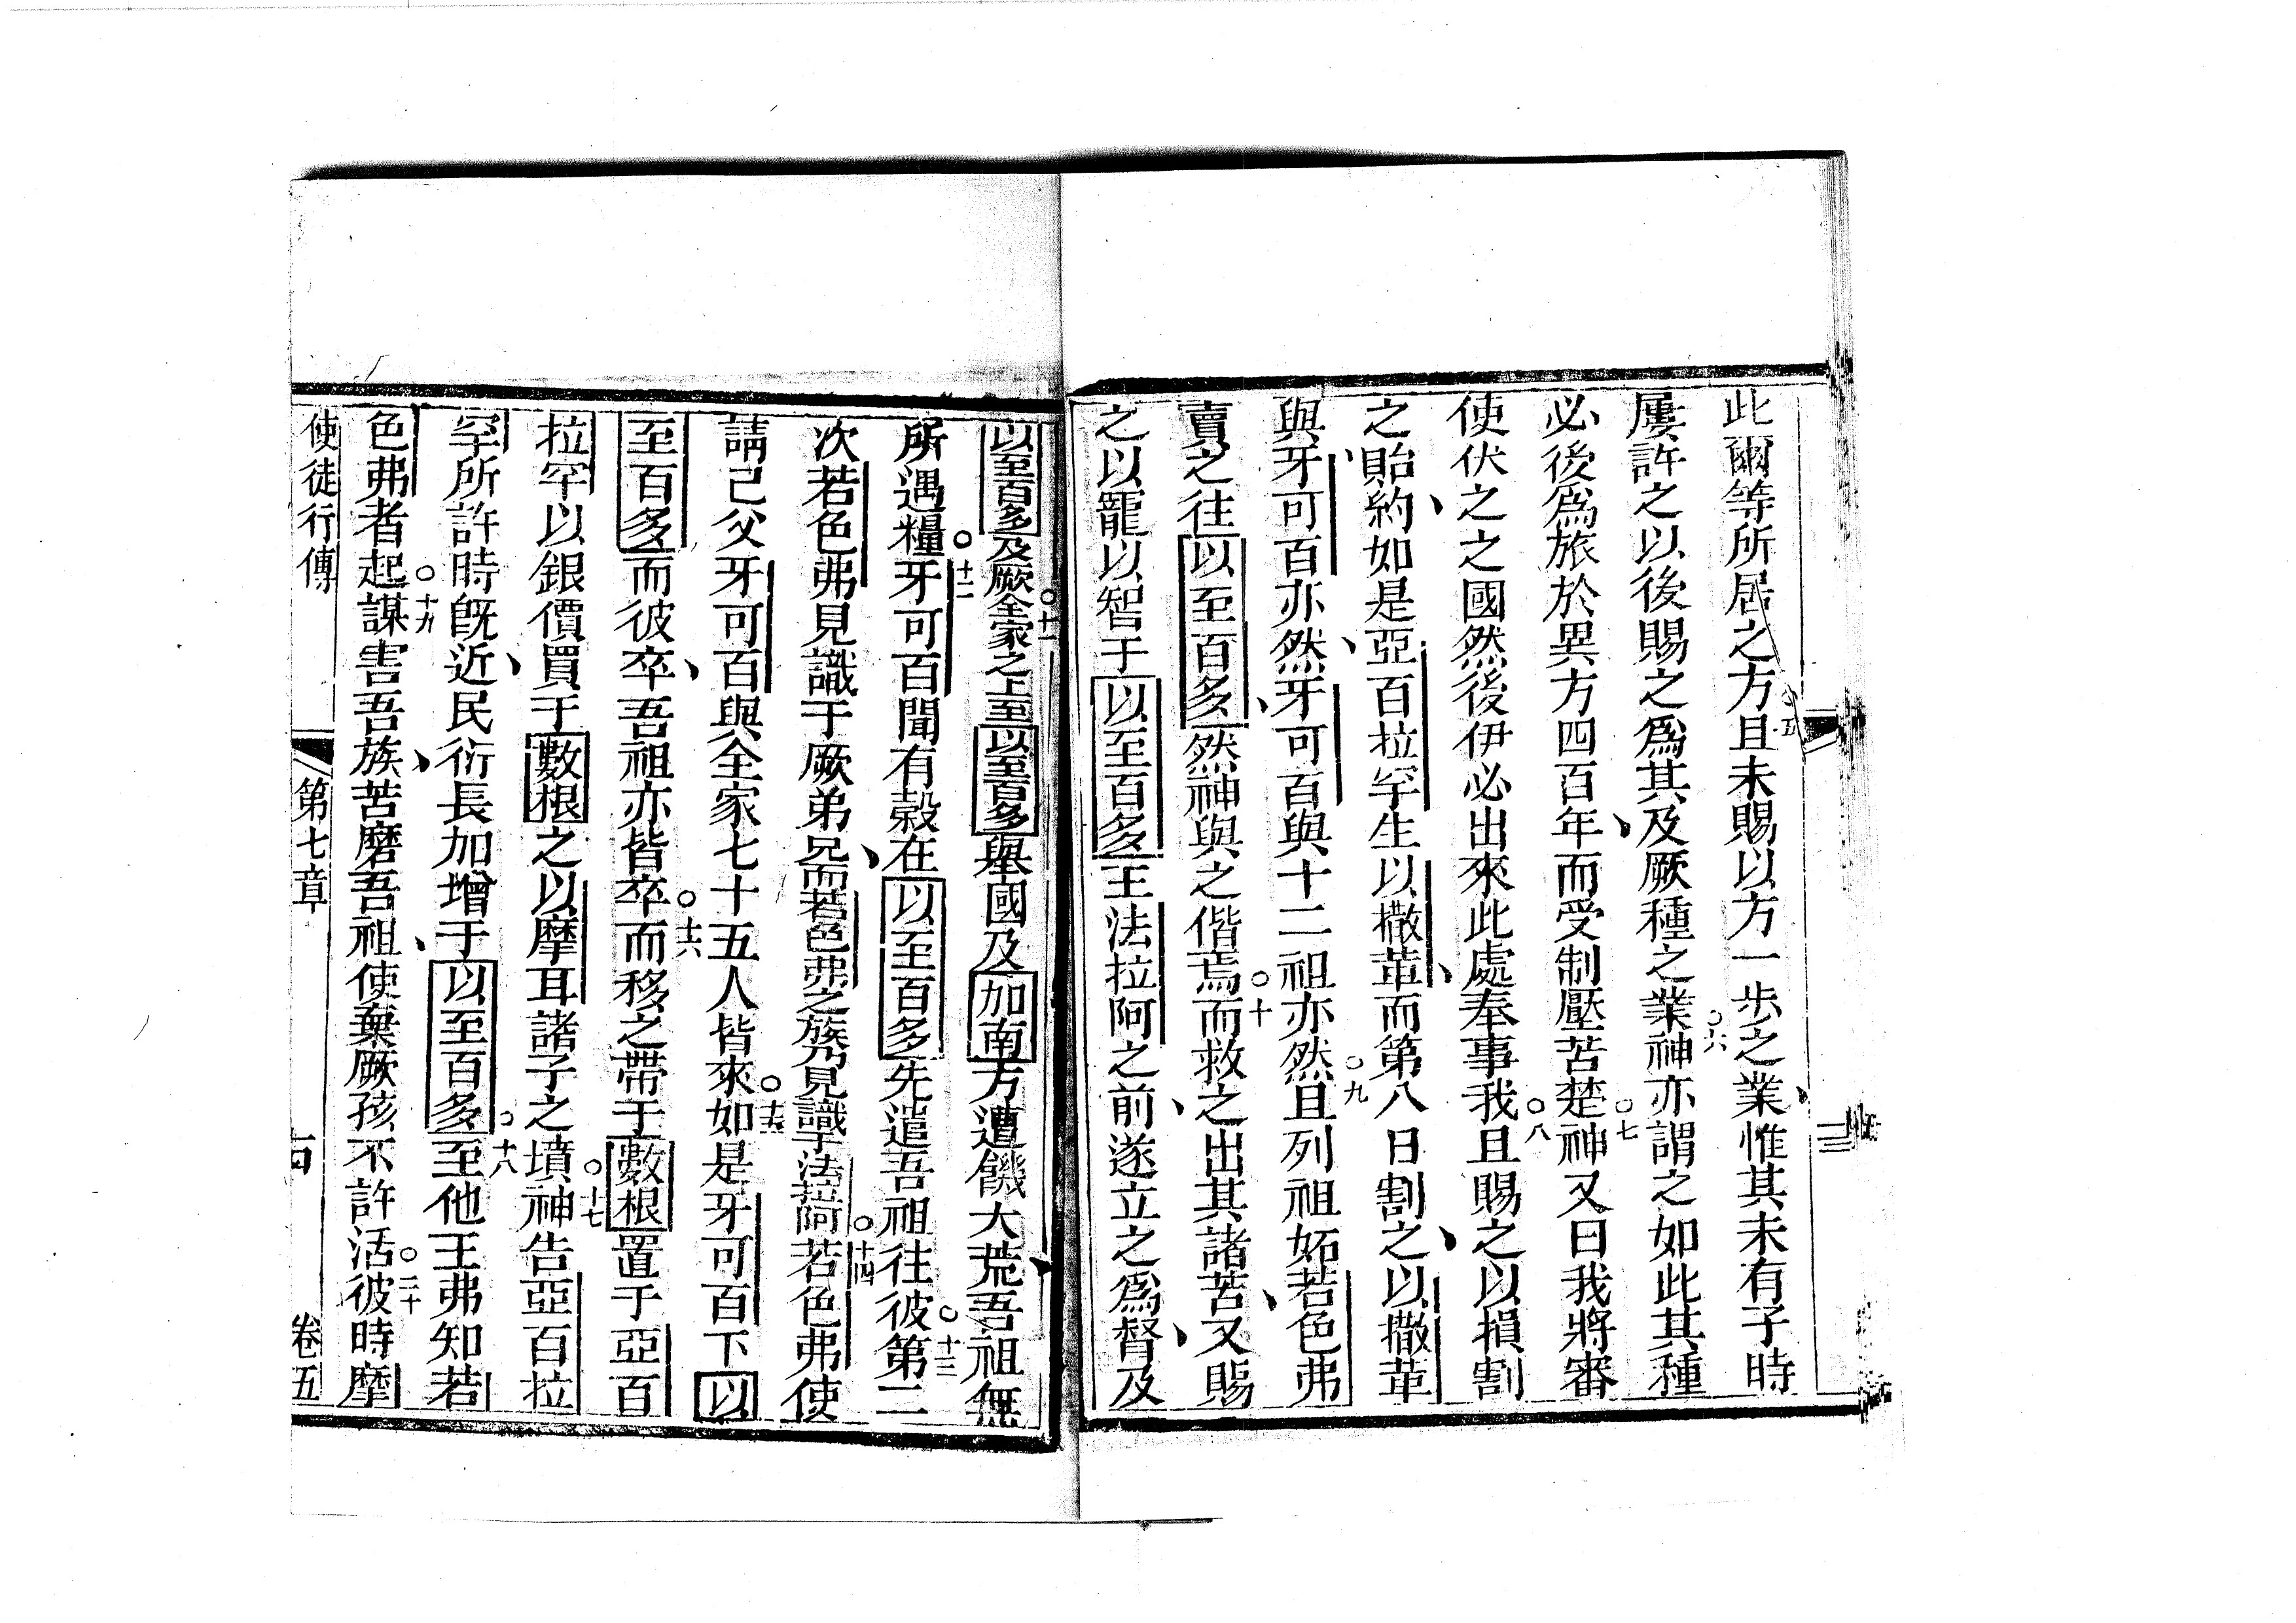 此爾等所居之方且未賜以方一步之業惟其未有子時
屢許之以後賜之為其及厥種之業神亦謂之如此其種
必後為旅於異方四百年而受制壓苦楚神又曰我將審
使伏之之國然後伊必出來此處奉事我且賜之以損割
之貽約如是亞百拉罕生以撒革而第八日割之以撒革
與牙可百亦然牙可百與十二祖亦然且列祖妬若色弗
賣之往以至百多然神與之偕焉而救之出其諸苦又賜
之以寵以智于以至百多王法拉阿之前遂立之為督及
以至百多及厥全家之上至以至百多舉國及加南方遭饑大荒吾祖無
所遇糧牙可百聞有穀在以至百多先遣吾祖往彼第二
次若色弗見識于厥弟兄而若色弗之族乃見識于法拉阿若色弗使
請己父牙可百與全家七十五人皆來如是牙可百下以
至百多而彼卒吾祖亦皆卒而移之帶于數根置于亞百
拉罕以銀價買于數根之以摩耳諸子之墳神告亞百拉
罕所許時既近民衍長加增于以至百多至他王弗知若
色弗者起謀害吾族苦磨吾祖使棄厥孩不許活彼時摩
使徒行傳 第七章 卷五